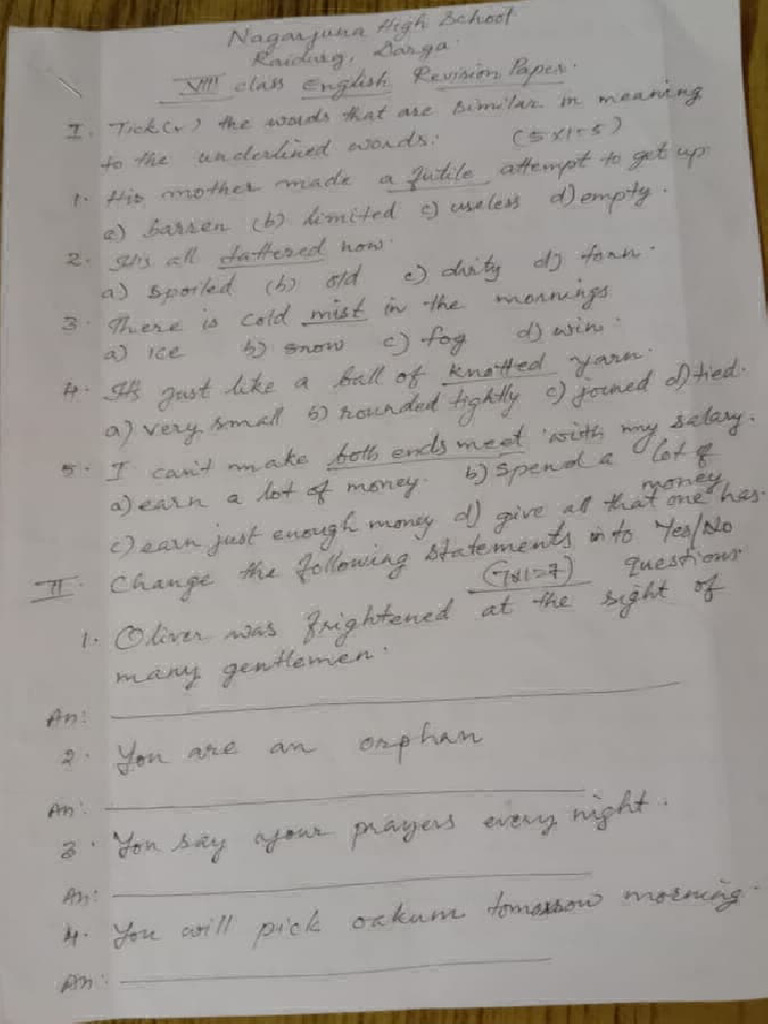 Nagarjuna High School
Raidurg, Darga.
VIII class English Revision Paper.
I. Tick(✓) the words that are similar in meaning
to the underlined words: (5x1=5)
1. His mother made a futile attempt to get up.
a) barren (b) limited c) useless d) empty.
2. It's all tattered now.
a) spoiled (b) old c) dirty d) torn.
3. There is cold mist in the mornings
a) ice b) snow c) fog d) win.
4. It's just like a ball of knotted yarn.
a) very small b) rounded tightly c) joined d) tied.
5. I can't make both ends meet with my salary.
a) earn a lot of money. b) spend a lot of
money
c) earn just enough money d) give all that one has.
II. Change the following statements in to Yes/No
(7x1=7) questions
1. Oliver was frightened at the sight of
many gentlemen.
An:
2. You are an orphan
An:
3. You say your prayers every night.
An:
4. You will pick oakum tomorrow morning.
An: